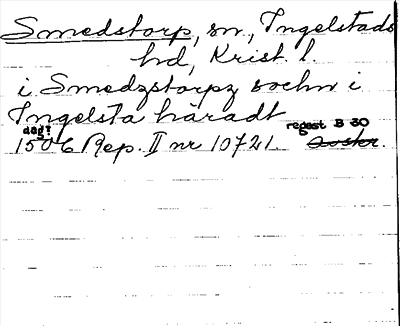 Smedstorp, sn, Ingelstads
hd, Krist. l.
i Smedzstorpz sochn i
Ingelsta häradt
dag? regest B 30
1506 Rep. II nr 10721. Avskr.